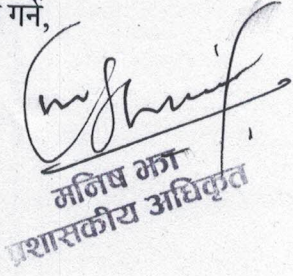 गर्ने,
मनिष झा
प्रशासकीय अधिकृत